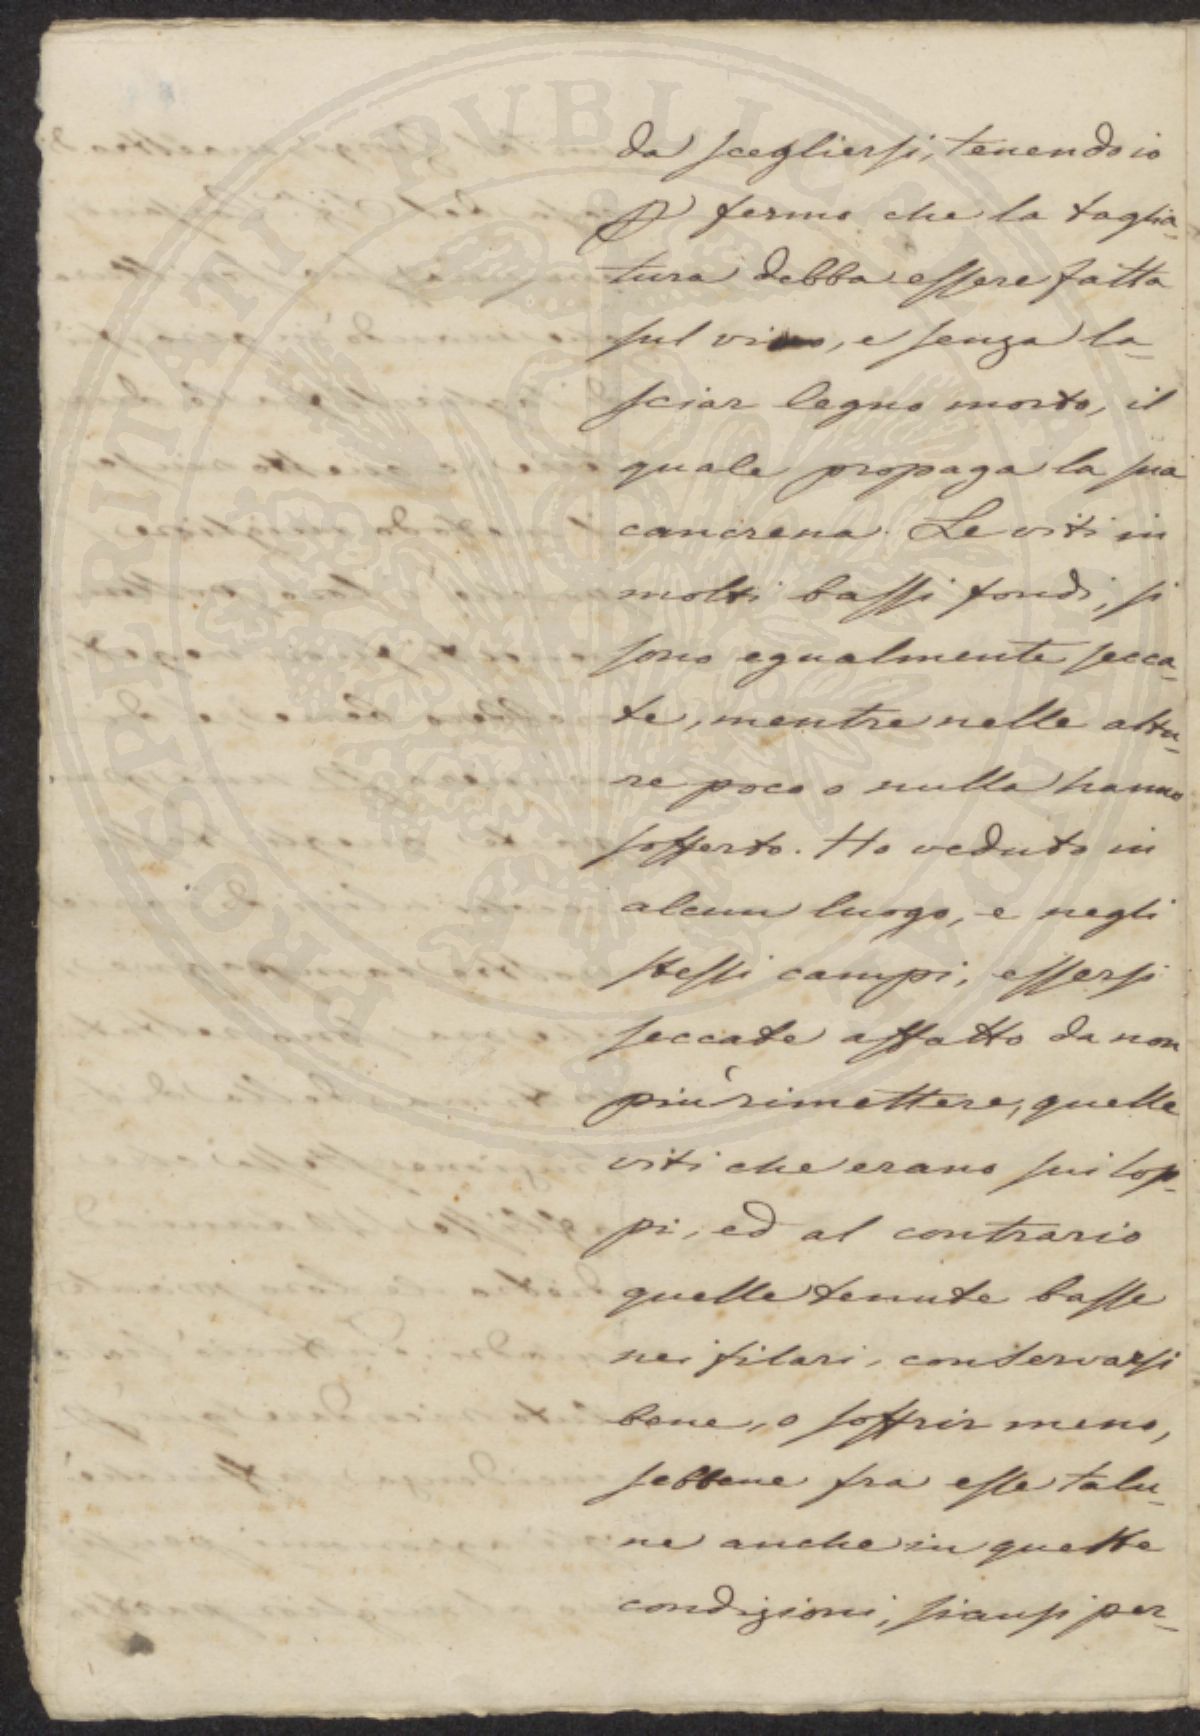 da scegliersi, tenendo io
p fermo che la taglia-
tura debba essere fatta
sul vivo, e senza la-
sciar legno morto, il
quale propaga la sua
cancrena. Le viti in
molti bassi fondi, si
sono egualmente secca-
te, mentre nelle altu-
re poco o nulla hanno
sofferto. Ho veduto in
alcun luogo, e negli
stessi campi, essersi
seccate affatto da non
più rimettere, quelle
viti che erano sui lop-
pi, ed al contrario
quelle tenute basse
nei filari, conservarsi
bene, o soffrir meno,
sebbene fra esse talu-
ne anche in queste
condizioni, siansi per-
PROSPERITATI PVBLICAE